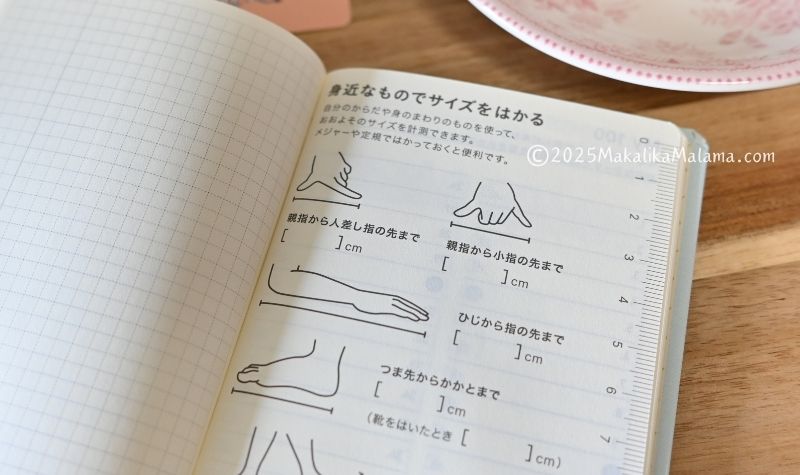 身近なものでサイズをはかる
自分のからだや身のまわりのものを使って、
おおよそのサイズを計測できます。
メジャーや定規ではかっておくと便利です。
©2025MakalikaMalama.com
親指から人差し指の先まで
[ ]cm
親指から小指の先まで
[ ]cm
ひじから指の先まで
[ ]cm
つま先からかかとまで
[ ]cm
(靴をはいたとき [ ]cm)
0
1
2
3
4
5
6
7